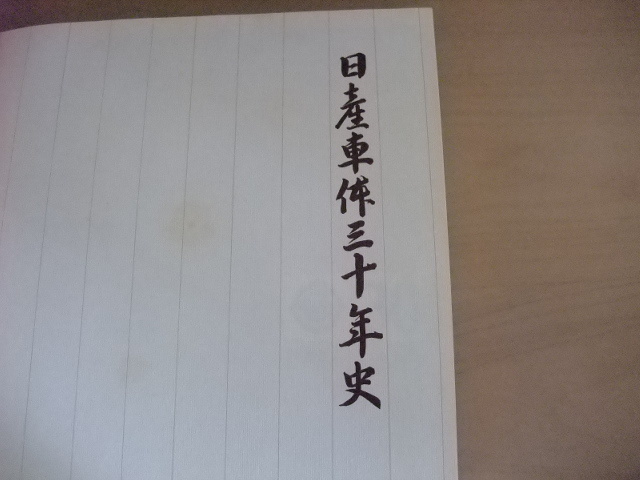 日産車体三十年史